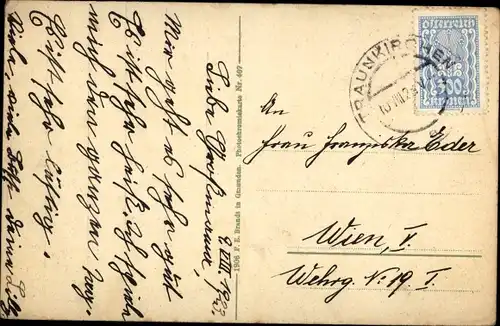 9. VIII. 1923.
Liebe Großmama!
Mir geht es sehr gut
Es ist sehr heiß. Ich spiele
mich den ganzen Tag.
Es ist sehr lustig.
Viele, viele Bussi Deine
1906 F. E. Brandt in Gmunden. Photochromiekarte Nr. 407
Österreich
300
Kronen
TRAUNKIRCHEN
10.VIII.23
An
Frau Franziska Eder
Wien, V.
Wehrg. N: 19. I.